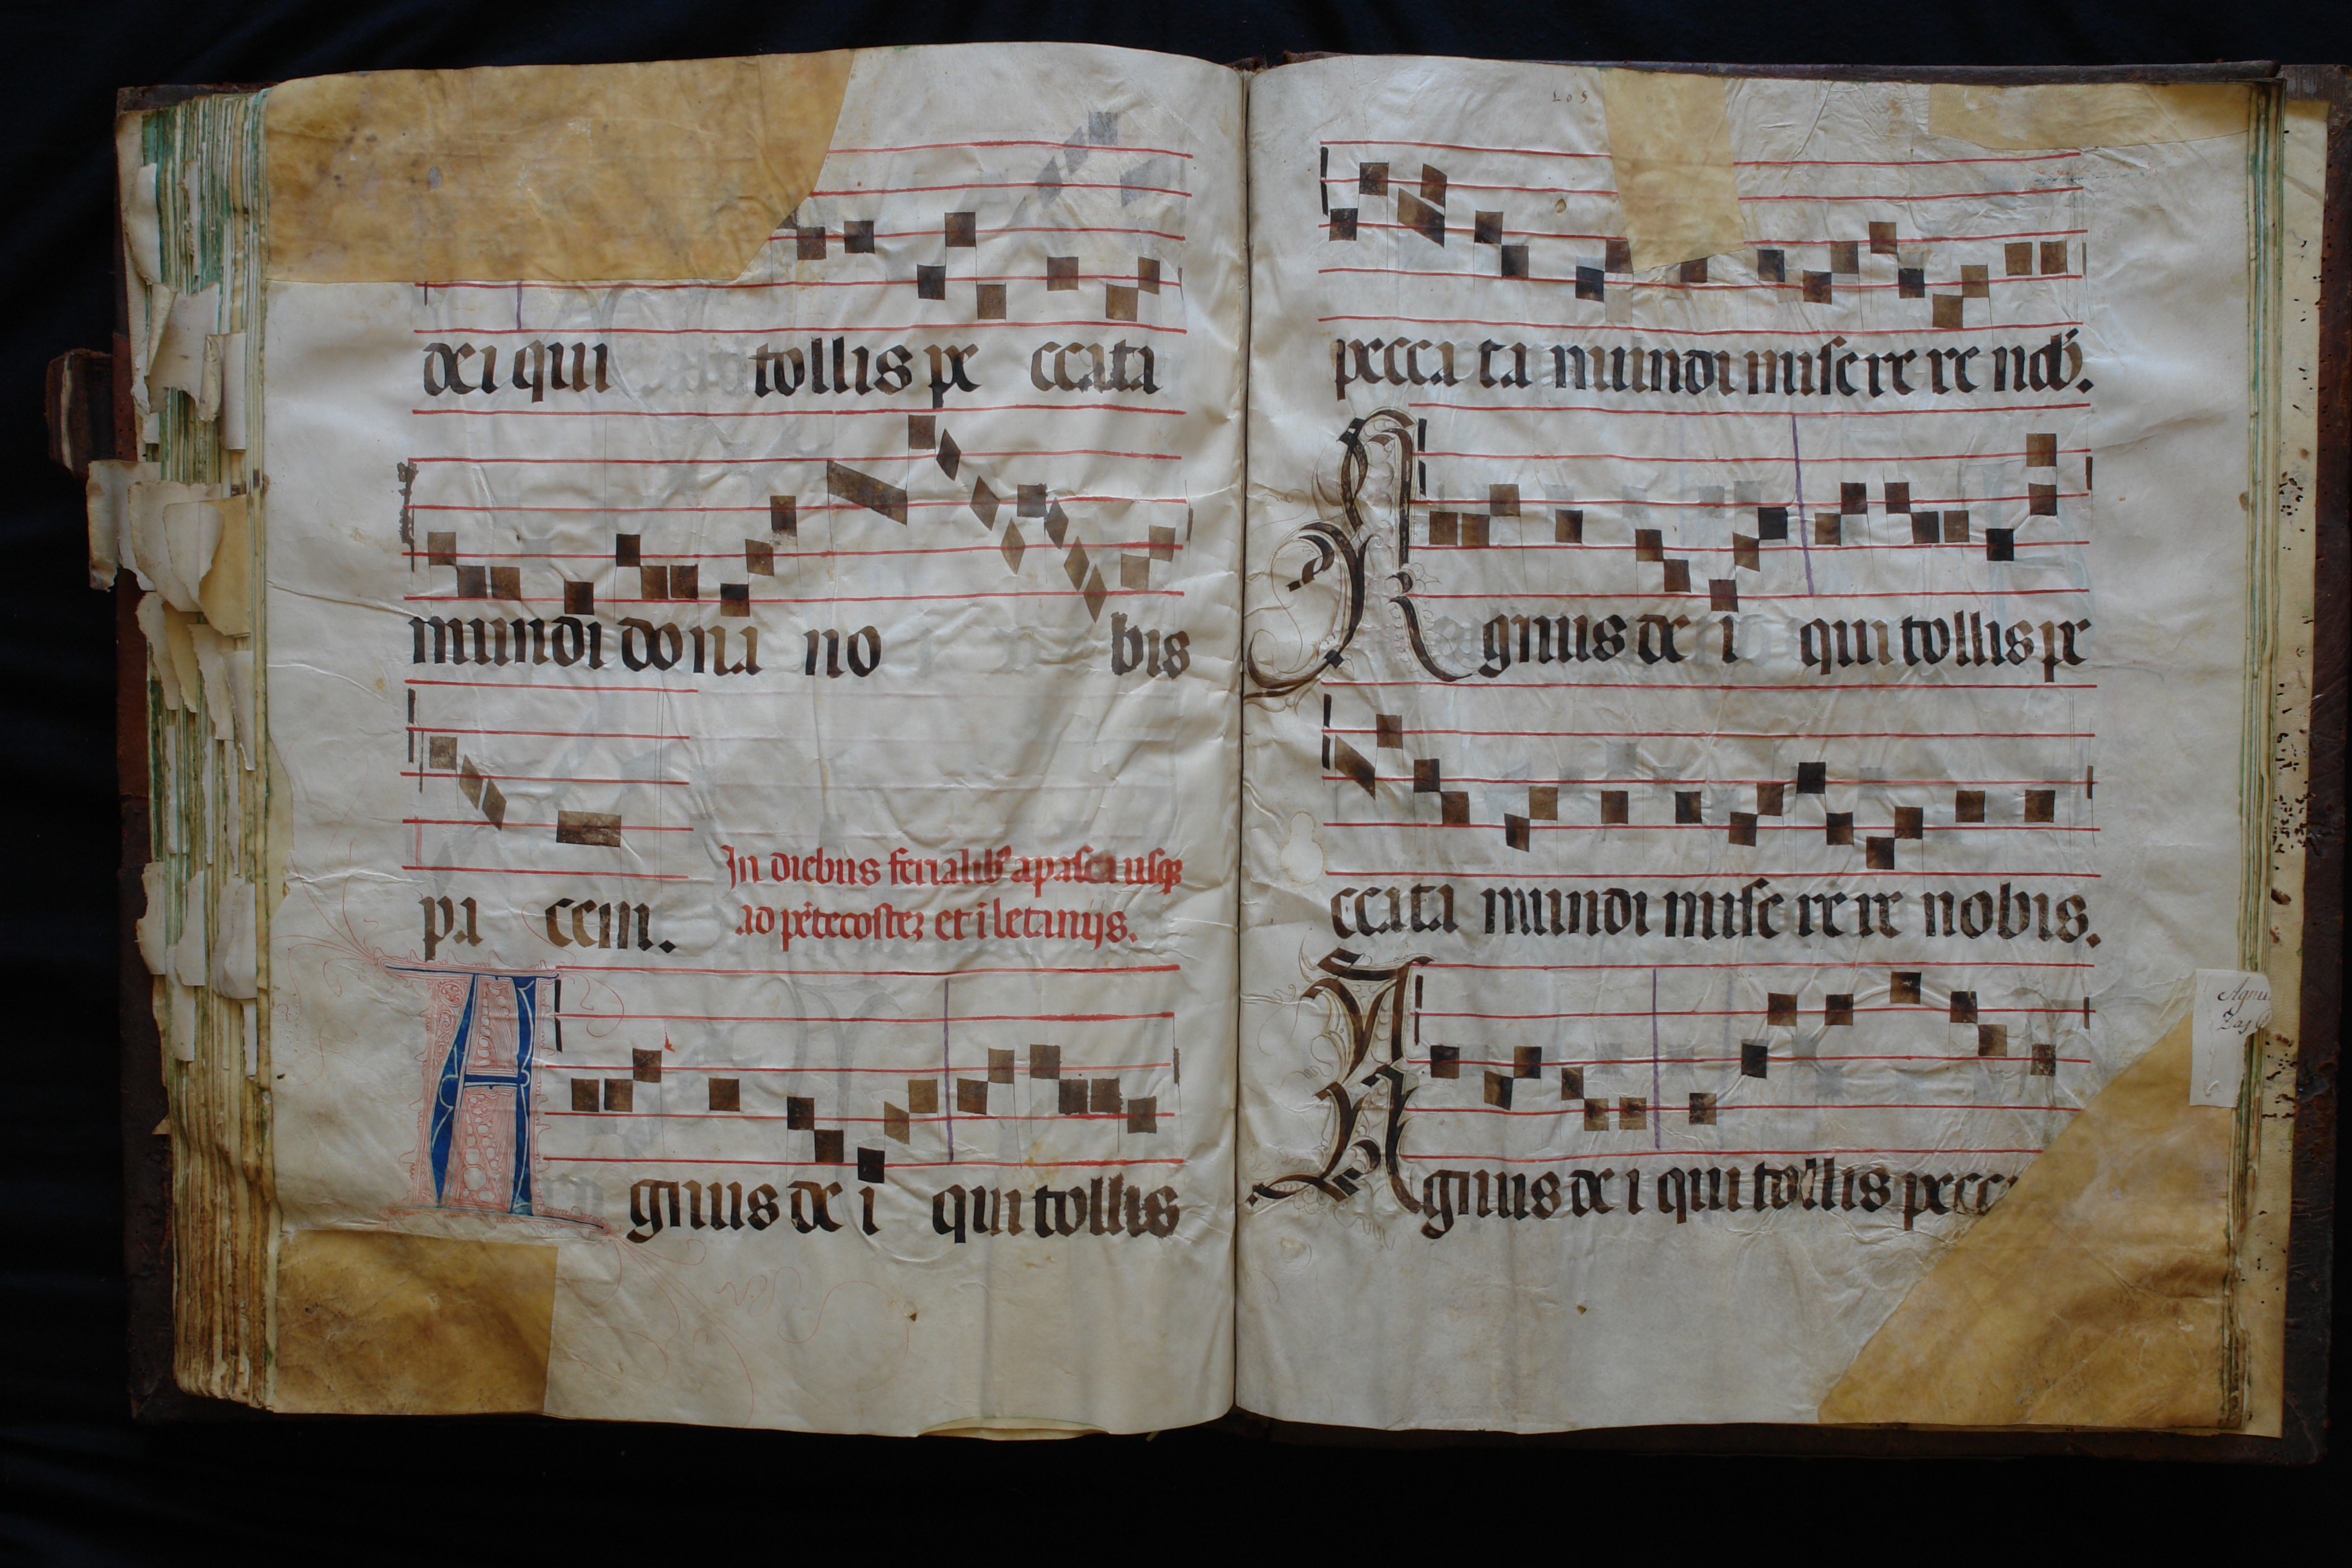 dei qui tollis pe ccata
mundi dona no bis
pa cem.
In diebus ferialib᷒ a pasca usqꝫ
ad pẽtecosteꝫ et ĩ letanijs.
A gnus de i qui tollis
105
pecca ta mundi mise re re nob᷒.
A gnus de i qui tollis pe
ccata mundi mise re re nobis.
A gnus de i qui tollis pecc
Agnu